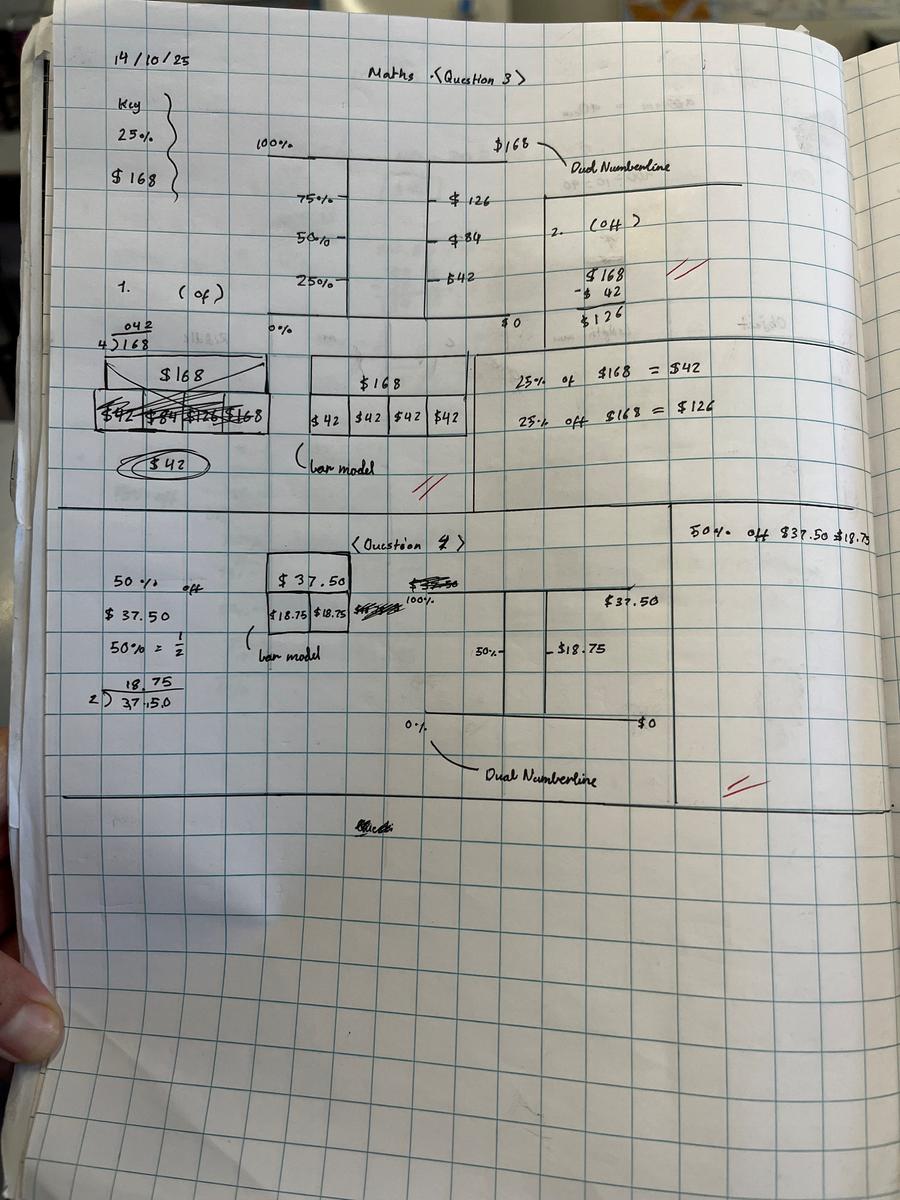 14/10/25
Maths <Question 3>
Key
25%
$168
100%
$168
Dual Numberline
75%
$126
50%
$84
25%
$42
0%
$0
1. (of)
042
4)168
$168
$42 $84 $126 $168
$42
$168
$42 $42 $42 $42
bar model
2. (off)
$168
-$ 42
$126
25% of $168 = $42
25% off $168 = $126
<Question 4>
50% off
$37.50
50% = 1/2
18.75
2)37.50
$37.50
$18.75 $18.75
bar model
$37.50
100%
$37.50
50%
$18.75
0%
$0
Dual Numberline
50% off $37.50 = $18.75